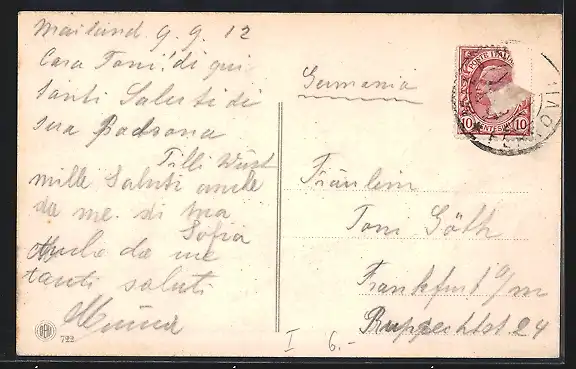 Mailand 9. 9. 12
Cara Toni! di qui
tanti Saluti di
sua Padrona
Tilli Wüst
mille Saluti anche
da me. di tua
Sofia
Anche da me
tanti saluti
Germania
POSTE ITALIANE
10 CENTESIMI 10
Fräulein
Toni Göth
Frankfurt a/m
Ruppechtst. 24
I 6.-
722